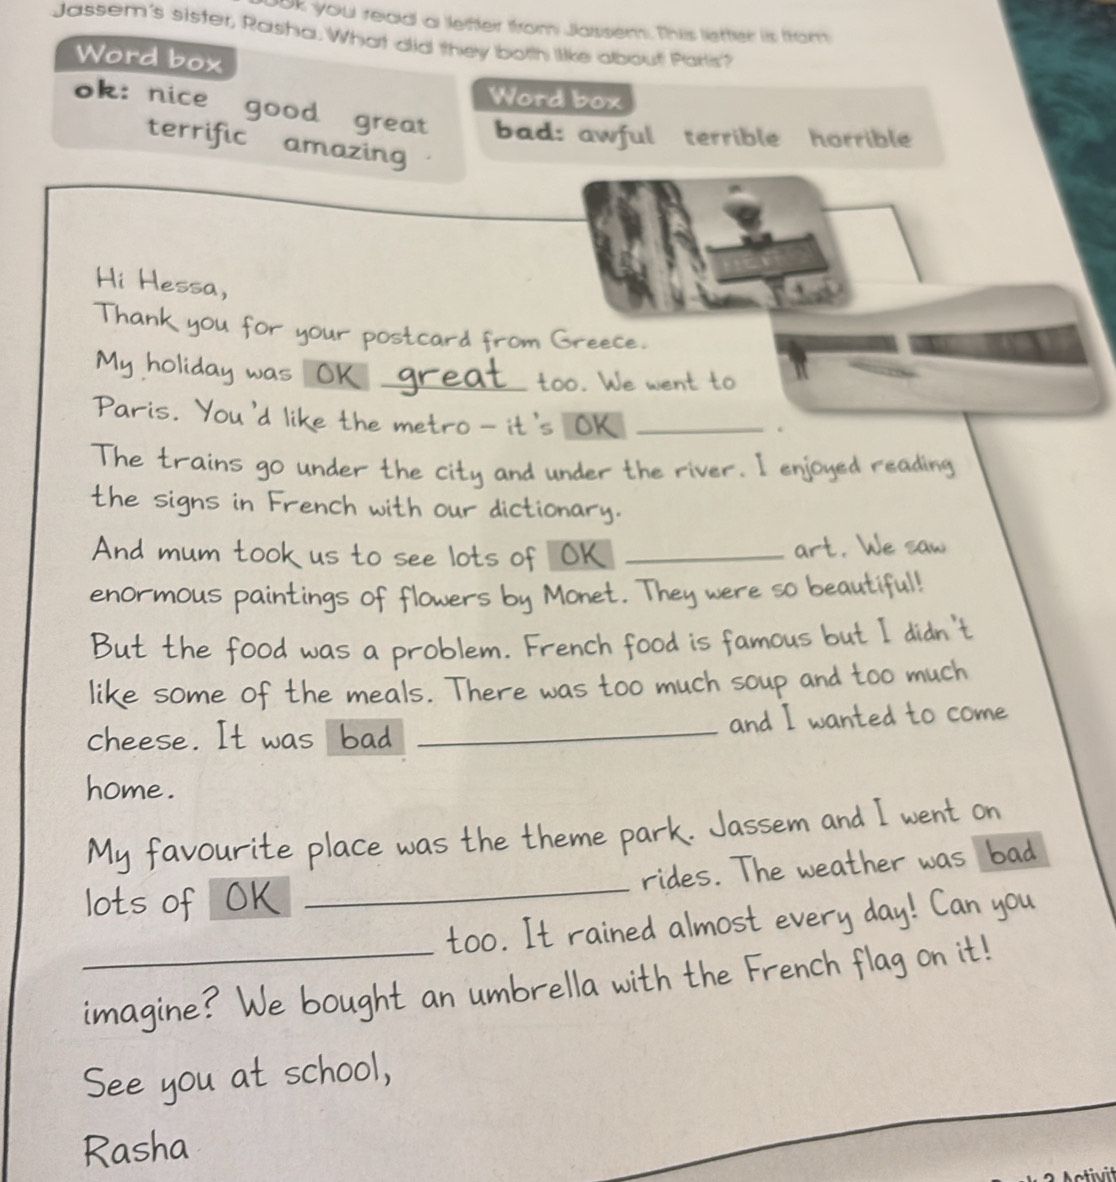 you read a letter from Jassem. This letter is from
Jassem's sister, Rasha. What did they both like about Paris?
Word box
ok: nice good great
terrific amazing
Word box
bad: awful terrible horrible
Hi Hessa,
Thank you for your postcard from Greece.
My holiday was OK great too. We went to
Paris. You'd like the metro - it's OK ________ .
The trains go under the city and under the river. I enjoyed reading
the signs in French with our dictionary.
And mum took us to see lots of OK ________ art. We saw
enormous paintings of flowers by Monet. They were so beautiful!
But the food was a problem. French food is famous but I didn't
like some of the meals. There was too much soup and too much
cheese. It was bad ________ and I wanted to come
home.
My favourite place was the theme park. Jassem and I went on
lots of OK ________ rides. The weather was bad
________ too. It rained almost every day! Can you
imagine? We bought an umbrella with the French flag on it!
See you at school,
Rasha